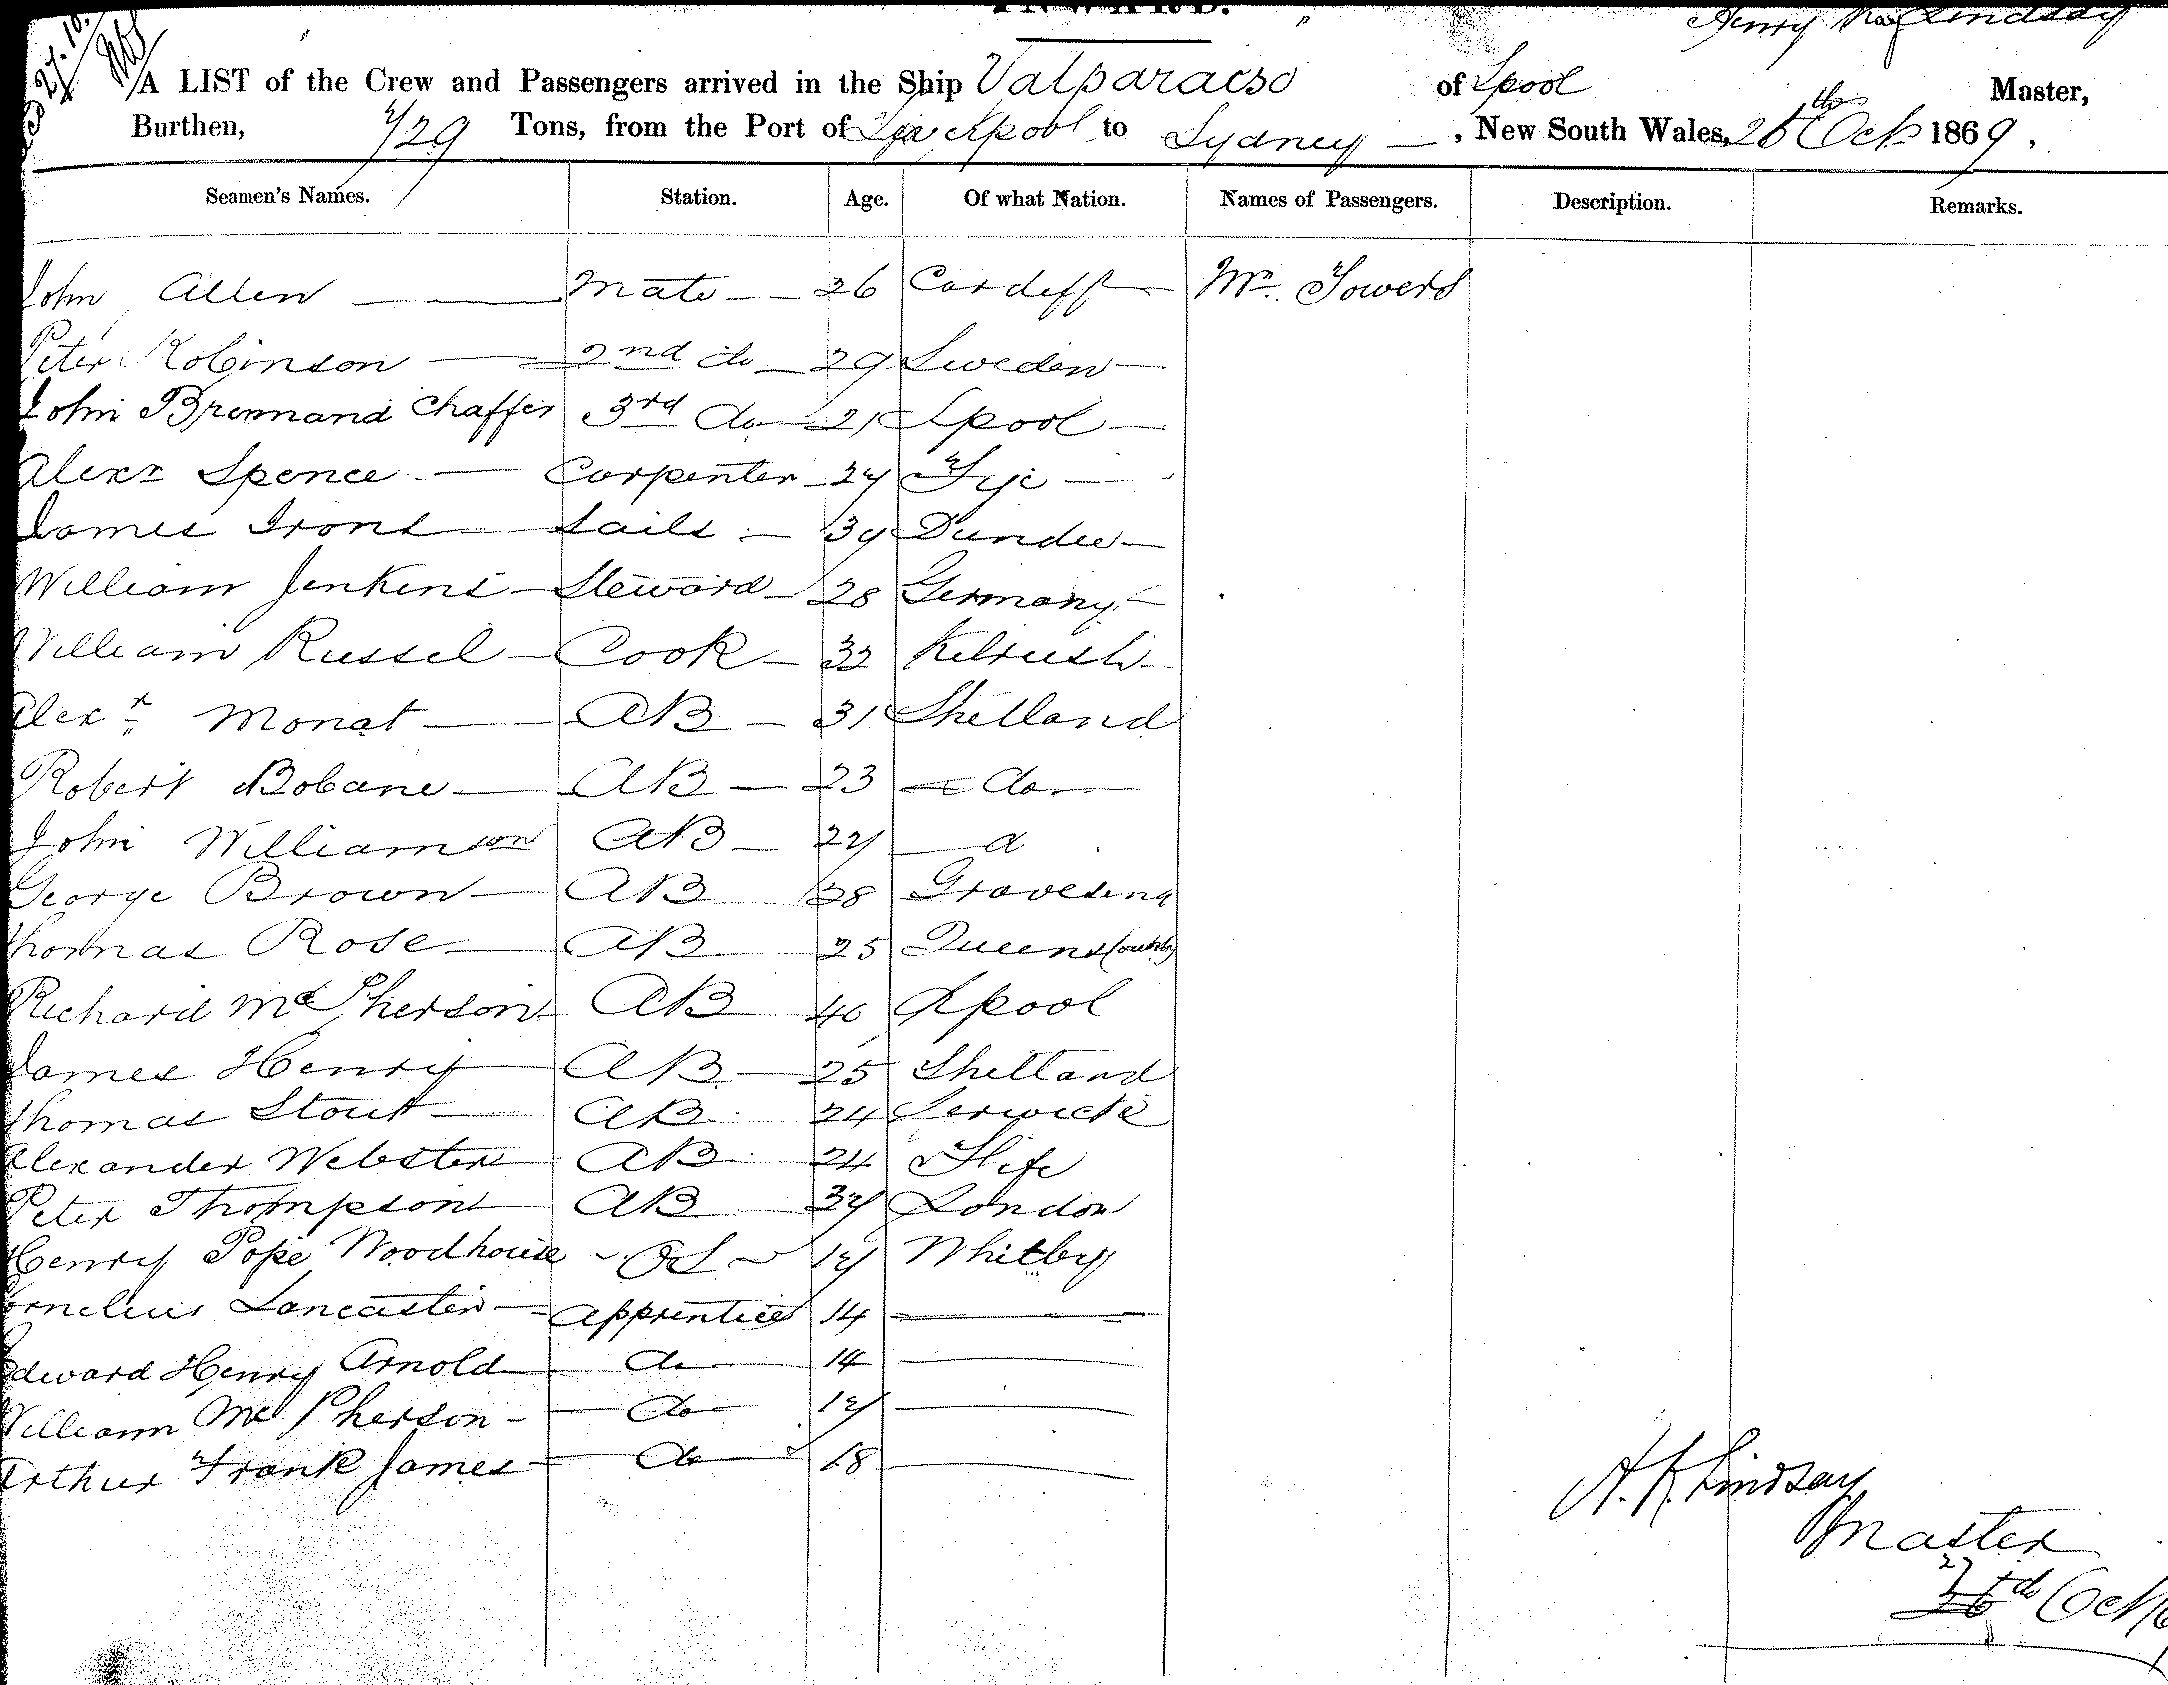 INWARD.
Henry Lindsay
A LIST of the Crew and Passengers arrived in the Ship Valparaiso of Lpool Master,
Burthen, 729 Tons, from the Port of Liverpool to Sydney, New South Wales, 26th Oct 1869.
Seamen's Names. Station. Age. Of what Nation. Names of Passengers. Description. Remarks.
John Allen Mate 26 Cardiff Mr. Towers
Peter Robinson 2nd do 29 Sweden
John Brennand Chaffer 3rd do 21 Lpool
Alexr Spence Carpenter 27 Fife
James Irons Sails 39 Dundee
William Jenkins Steward 28 Germany
William Russel Cook 32 Kilrush
Alexr Monat AB 31 Shetland
Robert Bobane AB 23 do
John Williamson AB 27 d
George Brown AB 28 Gravesend
Thomas Rose AB 25 Queens County
Richard McPherson AB 40 Lpool
James Henry AB 25 Shetland
Thomas Stout AB 24 Lerwick
Alexander Webster AB 24 Fife
Peter Thompson AB 37 London
Henry Pope Woodhouse OS 17 Whitby
Cornelius Lancaster Apprentice 14
Edward Henry Arnold do 14
William McPherson do 17
Arthur Frank James do 18
H. R. Lindsay
Master
27 26th Oct